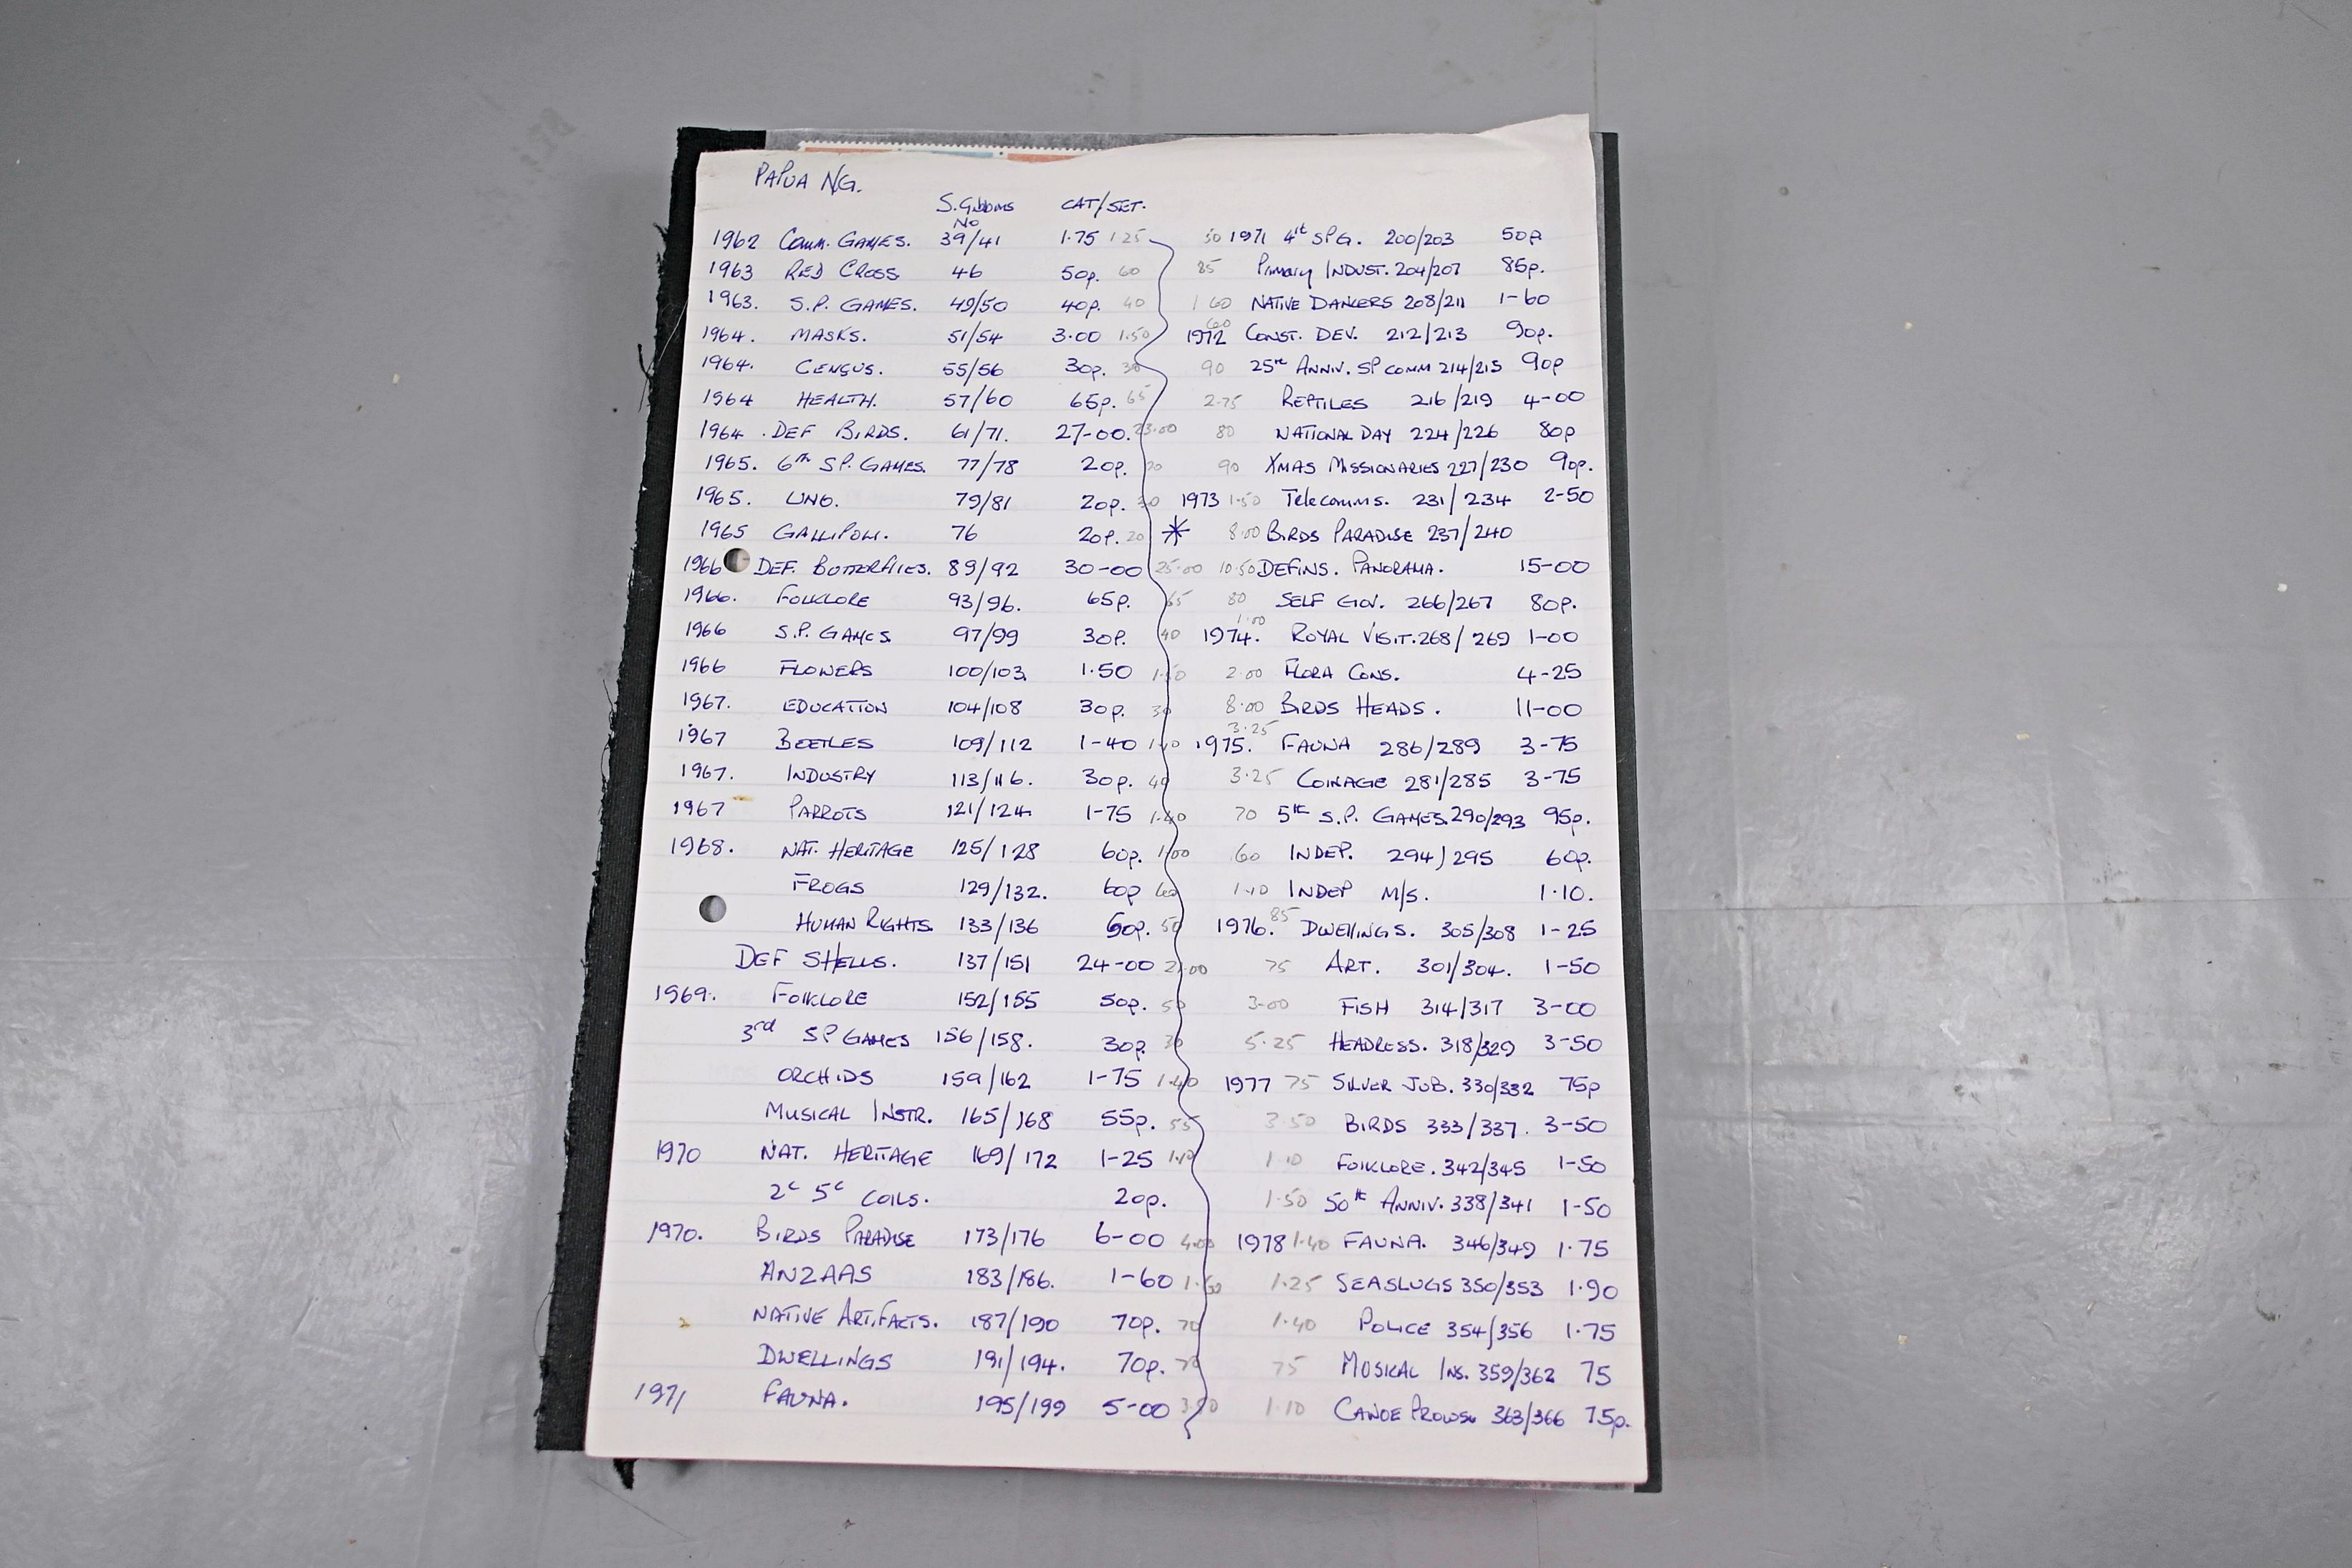 PAPUA NG.
S. Gibbons No CAT/SET.
1962 Comm. GAMES. 39/41 1.75 1 25
1963 RED CROSS 46 50p. 60
1963. S.P. GAMES. 49/50 40p. 40
1964. MASKS. 51/54 3.00 1.50
1964. CENSUS. 55/56 30p. 30
1964 HEALTH. 57/60 65p. 65
1964 . DEF BIRDS. 61/71. 27-00. 23.00
1965. 6th SP. GAMES. 77/78 20p. 20
1965. UNO. 79/81 20p.
1965 GALLIPOLI. 76 20p. 20
1966 DEF. BUTTERFLIES. 89/92 30-00 25.00
1966. FOLKLORE 93/96. 65p. 65
1966 S.P. GAMES 97/99 30p. 40
1966 FLOWERS 100/103. 1.50
1967. EDUCATION 104/108 30p. 30
1967 BEETLES 109/112 1-40
1967. INDUSTRY 113/116. 30p. 40
1967 PARROTS 121/124 1-75 1.40
1968. NAT. HERITAGE 125/128 60p. 1.00
FROGS 129/132. 60p 60
HUMAN RIGHTS. 133/136 50p. 50
DEF SHELLS. 137/151 24-00
1969. FOLKLORE 152/155 50p. 50
3rd SP GAMES 156/158. 30p. 30
ORCHIDS 159/162 1-75 1.40
MUSICAL INSTR. 165/168 55p. 55
1970 NAT. HERITAGE 169/172 1-25 1.10
2c 5c COILS. 20p.
1970. BIRDS PARADISE 173/176 6-00 4.00
ANZAAS 183/186. 1-60 1.60
NATIVE ARTIFACTS. 187/190 70p. 70
DWELLINGS 191/194. 70p. 70
1971 FAUNA. 195/199 5-00
50 1971 4th SPG. 200/203 50p
85 Primary INDUST. 204/207 85p.
1 60 NATIVE DANCERS 208/211 1-60
60
1972 CONST. DEV. 212/213 90p.
90 25th ANNIV. SP COMM 214/215 90p
2.75 REPTILES 216/219 4-00
80 NATIONAL DAY 224/226 80p
90 XMAS MISSIONARIES 227/230 90p.
1973 1.50 Telecomms. 231/234 2-50
* 8.00 BIRDS PARADISE 237/240
10.50 DEFINS. PANORAMA. 15-00
80 SELF GOV. 266/267 80p.
1.00
1974. ROYAL VISIT. 268/269 1-00
2.00 FLORA CONS. 4-25
8.00 BIRDS HEADS. 11-00
3.25
1975. FAUNA 286/289 3-75
3.25 COINAGE 281/285 3-75
70 5th S.P. GAMES. 290/293 95p.
60 INDEP. 294/295 60p.
1.10 INDEP M/S. 1.10.
1976. 85 DWELLINGS. 305/308 1-25
75 ART. 301/304. 1-50
3-00 FISH 314/317 3-00
5.25 HEADRESS. 318/329 3-50
1977 75 SILVER JUB. 330/332 75p
3.50 BIRDS 333/337. 3-50
1 10 FOLKLORE. 342/345 1-50
1.50 50th ANNIV. 338/341 1-50
1978 1.40 FAUNA. 346/349 1.75
1.25 SEASLUGS 350/353 1.90
1.40 POLICE 354/356 1.75
75 MUSICAL INS. 359/362 75
1.10 CANOE PROWS. 363/366 75p.